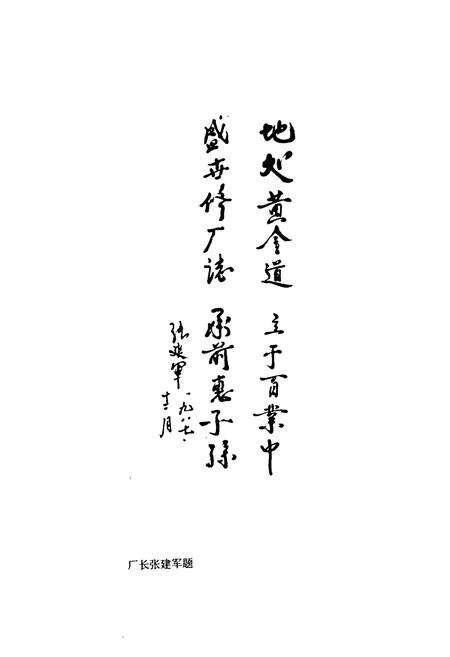 地处黄金道 立于百业中
盛世修厂志 承前惠子孙
张建军 一九八七、
十二月
厂长张建军题